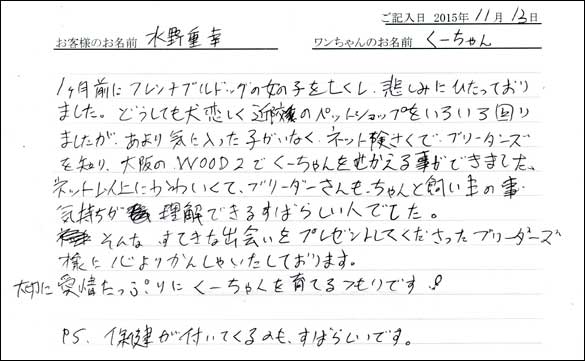 ご記入日 2015年 11月 13日
お客様のお名前 水野重幸 ワンちゃんのお名前 くーちゃん
1ヶ月前にフレンチブルドッグの女の子を亡くし、悲しみにひたっており
ました。どうしても犬恋しく近隣のペットショップをいろいろ回り
ましたが、あまり気に入った子がいなく、ネット検さくで、ブリーダーズ
を知り、大阪のWOOD2でくーちゃんをむかえる事ができました。
ネット以上にかわいくて、ブリーダーさんも、ちゃんと飼い主の事、
気持ちが 理解できるすばらしい人でした。
そんな、すてきな出会いをプレゼントしてくださったブリーダーズ
様に心よりかんしゃいたしております。
大切に愛情たっぷりにくーちゃんを育てるつもりです!
PS. 保健が付いてくるのも、すばらしいです。